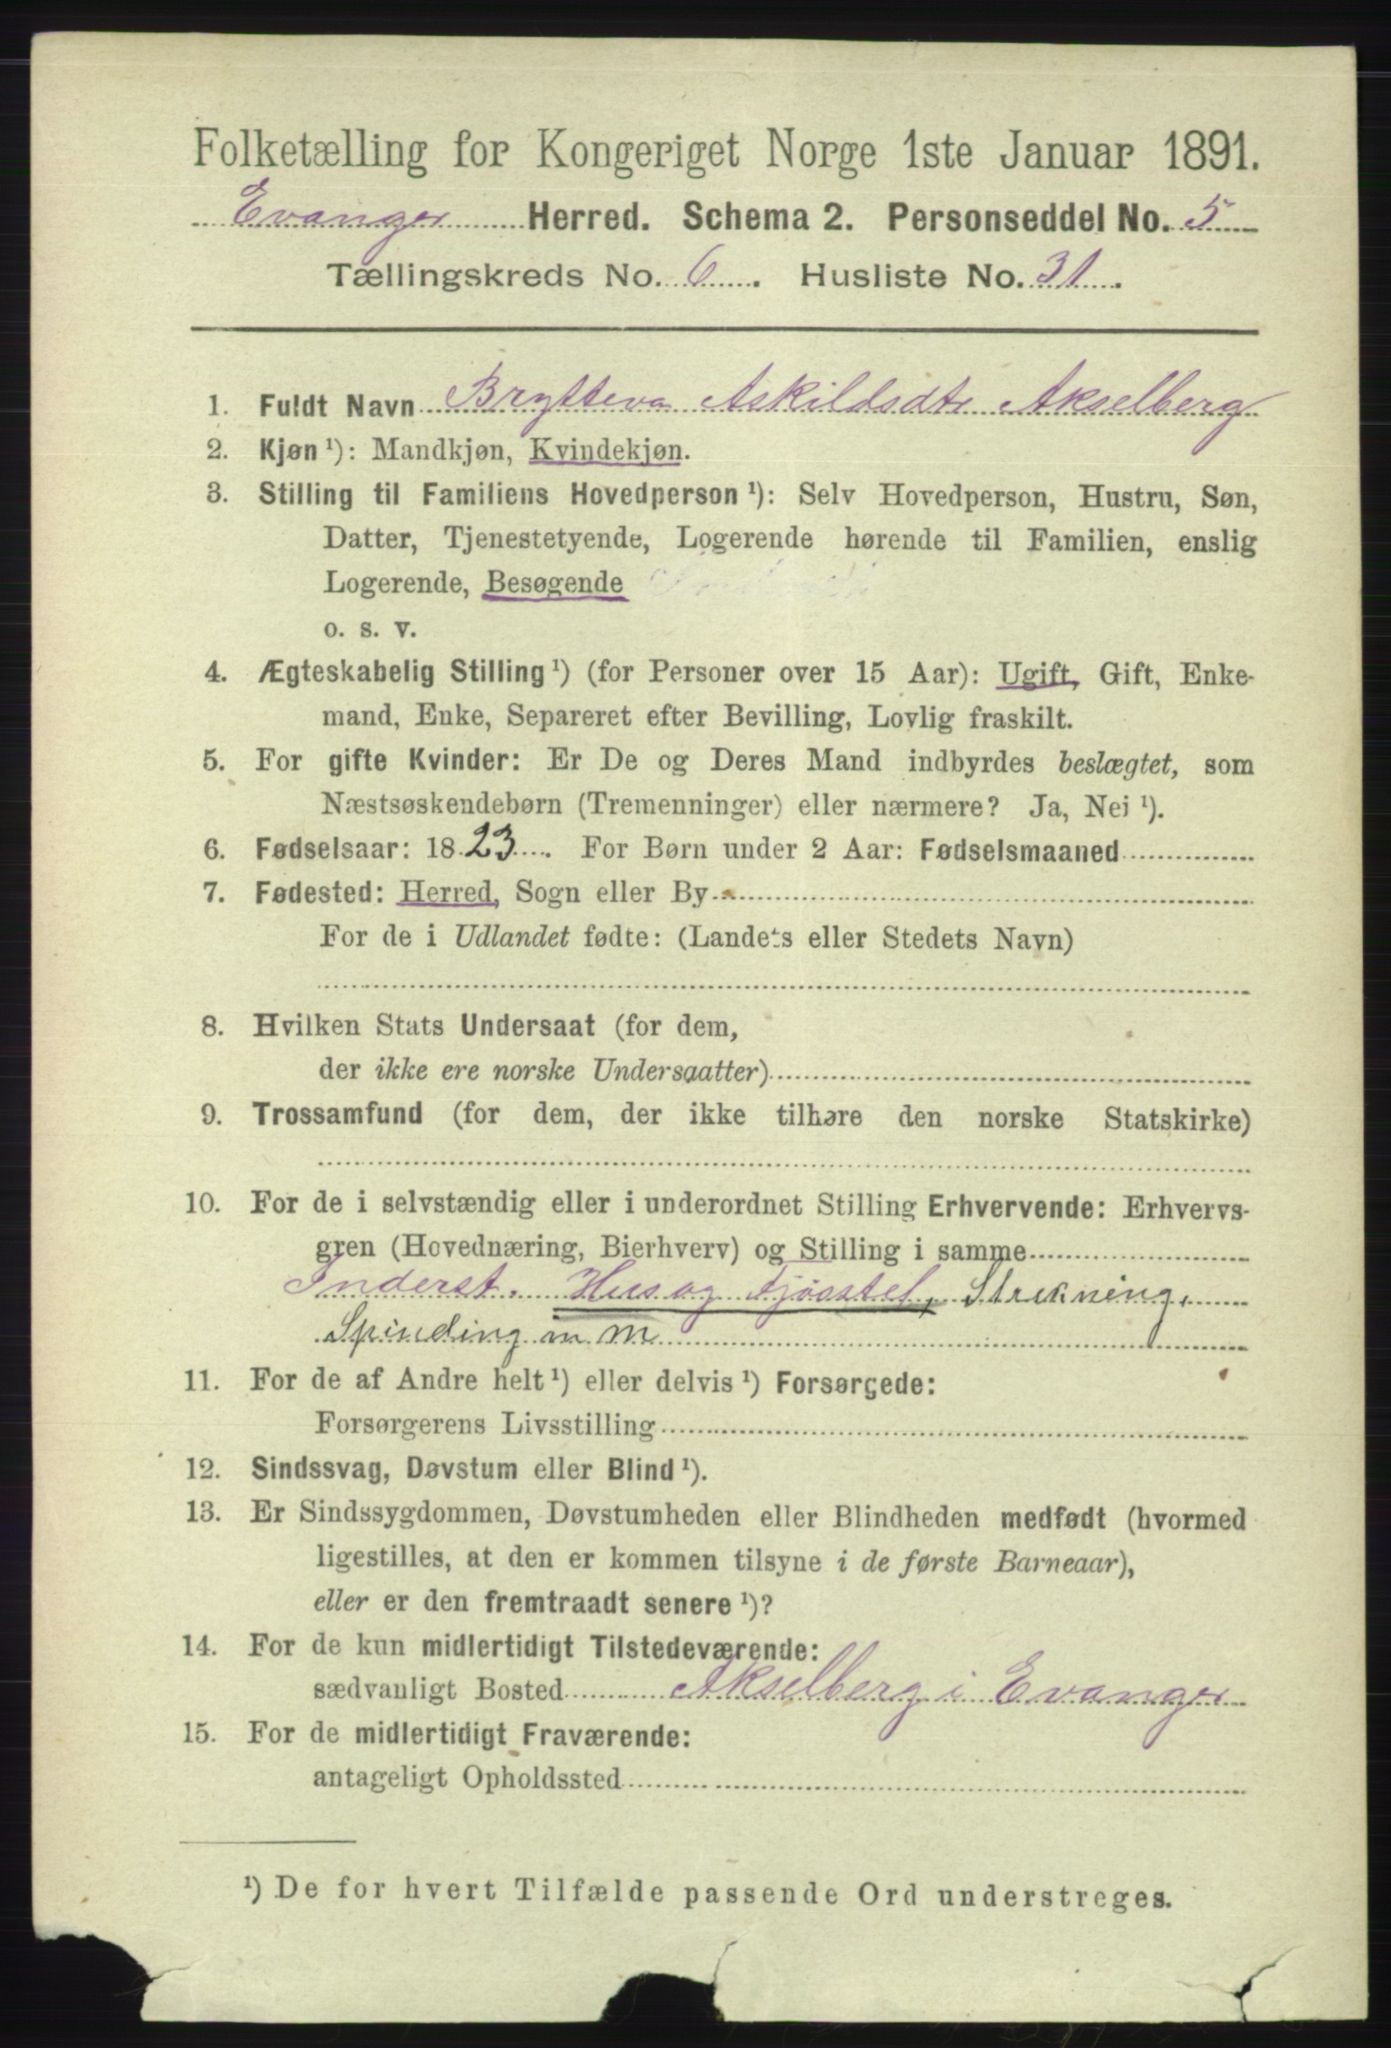 Folketælling for Kongeriget Norge 1ste Januar 1891.
Evanger Herred. Schema 2. Personseddel No. 5
Tællingskreds No. 6. Husliste No. 31.
1. Fuldt Navn Brytteva Askildsdtr Akselberg
2. Kjøn ¹): Mandkjøn, Kvindekjøn.
3. Stilling til Familiens Hovedperson ¹): Selv Hovedperson, Hustru, Søn,
Datter, Tjenestetyende, Logerende hørende til Familien, enslig
Logerende, Besøgende
o. s. v.
4. Ægteskabelig Stilling ¹) (for Personer over 15 Aar): Ugift, Gift, Enke-
mand, Enke, Separeret efter Bevilling, Lovlig fraskilt.
5. For gifte Kvinder: Er De og Deres Mand indbyrdes beslægtet, som
Næstsøskendebørn (Tremenninger) eller nærmere? Ja, Nei ¹).
6. Fødselsaar: 1823. For Børn under 2 Aar: Fødselsmaaned
7. Fødested: Herred, Sogn eller By
For de i Udlandet fødte: (Landets eller Stedets Navn)
8. Hvilken Stats Undersaat (for dem,
der ikke ere norske Undersaatter)
9. Trossamfund (for dem, der ikke tilhøre den norske Statskirke)
10. For de i selvstændig eller i underordnet Stilling Erhvervende: Erhvervs-
gren (Hovednæring, Bierhverv) og Stilling i samme
Inderst. Hus og Fjøsstel, Strikning,
Spinding m m
11. For de af Andre helt ¹) eller delvis ¹) Forsørgede:
Forsørgerens Livsstilling
12. Sindssvag, Døvstum eller Blind ¹).
13. Er Sindssygdommen, Døvstumheden eller Blindheden medfødt (hvormed
ligestilles, at den er kommen tilsyne i de første Barneaar),
eller er den fremtraadt senere ¹)?
14. For de kun midlertidigt Tilstedeværende:
sædvanligt Bosted Akselberg i Evanger
15. For de midlertidigt Fraværende:
antageligt Opholdssted
¹) De for hvert Tilfælde passende Ord understreges.